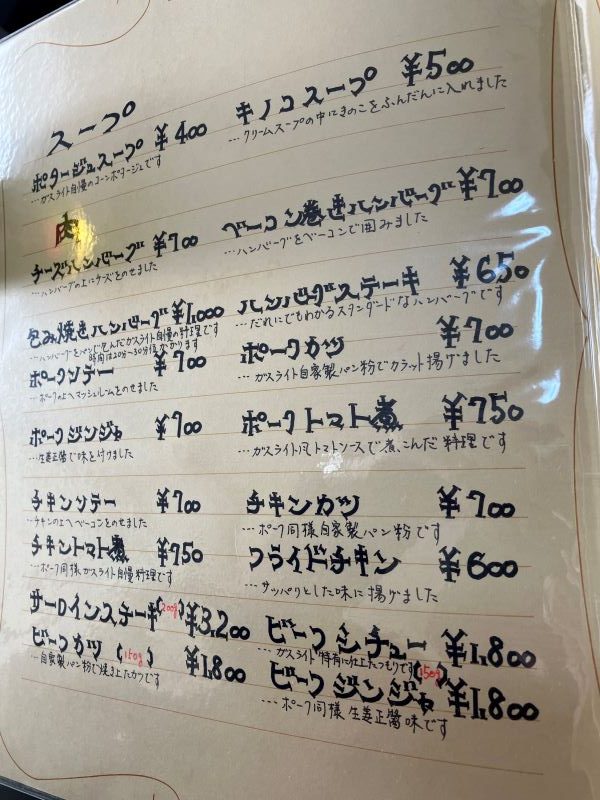 スープ
ポタージュスープ ¥400
…ガスライト自慢のコーンポタージュです
キノコスープ ¥500
…クリームスープの中にきのこをふんだんに入れました
肉
チーズハンバーグ ¥700
…ハンバーグの上にチーズをのせました
ベーコン巻きハンバーグ ¥700
…ハンバーグをベーコンで囲みました
包み焼きハンバーグ ¥1,000
…ハンバーグをパンで包んだガスライト自慢の料理です
時間は20分〜30分位かかります
ハンバーグステーキ ¥650
…だれにでもわかるスタンダードなハンバーグです
ポークソテー ¥700
…ポークの上へマッシュルームをのせました
ポークカツ ¥700
…ガスライト自家製パン粉でカラット揚げました
ポークジンジャ ¥700
…生姜正醤で味を付けました
ポークトマト煮 ¥750
…ガスライト風トマトソースで煮こんだ料理です
チキンソテー ¥700
…チキンの上へベーコンをのせました
チキンカツ ¥700
…ポーク同様自家製パン粉です
チキントマト煮 ¥750
…ポーク同様ガスライト自慢料理です
フライドチキン ¥600
…サッパリとした味に揚げました
サーロインステーキ(200g) ¥3,200
ビーフシチュー ¥1,800
…ガスライト特有に仕上たつもりです
ビーフカツ (150g) ¥1,800
…自家製パン粉で焼き上たカツです
ビーフジンジャ(150g) ¥1,800
…ポーク同様生姜正醤味です